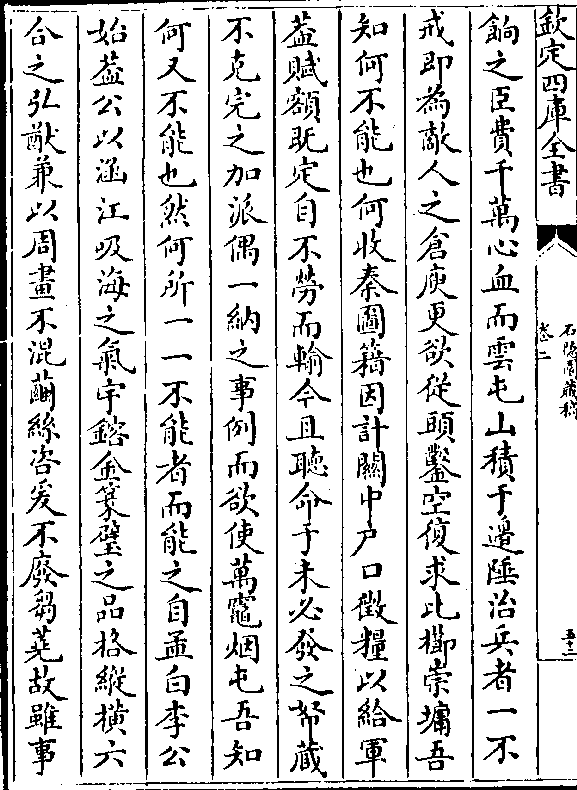 欽定四庫全書
石隱園藏稿
卷二
五十二
餉之臣費千萬心血而雲屯山積于邊陲治兵者一不
戒即為敵人之倉庾更欲從頭鑿空復求比櫛崇墉吾
知何不能也何收秦圖籍因計關中户口徵糧以給軍
葢賦額既定自不勞而輸今且聽命于未必發之帑藏
不克完之加派偶一納之事例而欲使萬竈烟屯吾知
何又不能也然何所一一不能者而能之自孟白李公
始葢公以涵江吸海之氣宇鎔金篆璧之品格縱横六
合之弘猷兼以周畫不混繭絲咨爰不廢芻蕘故雖事